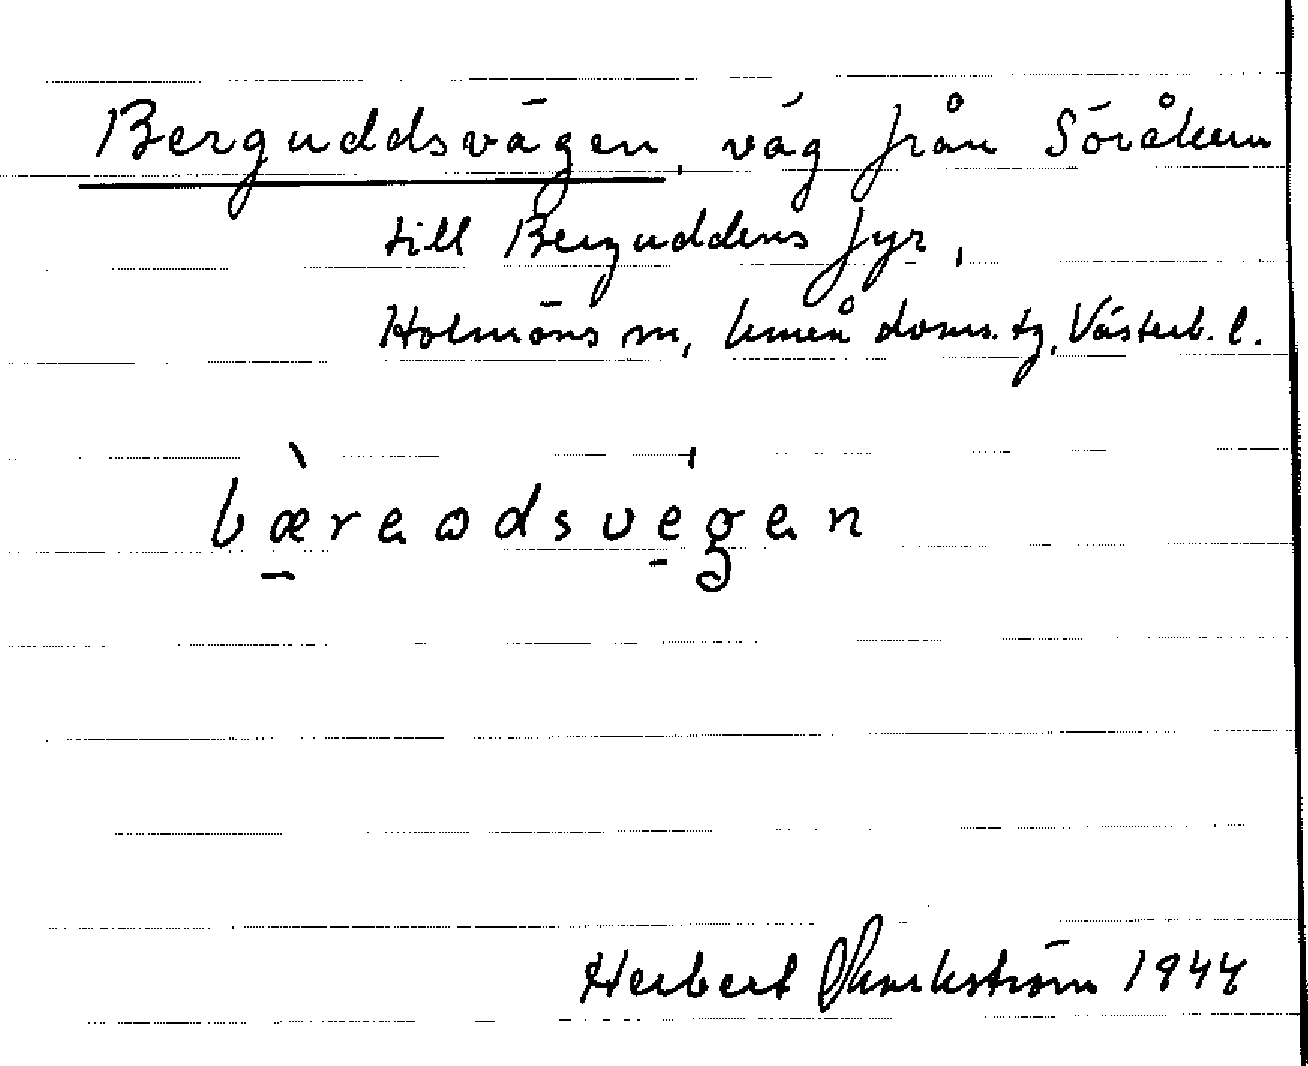 Berguddsvägen, väg från Söråkern
till Berguddens fyr,
Holmöns sn, Umeå doms. tg, Västerb. l.
bæreωdsvegen
Herbert 1944